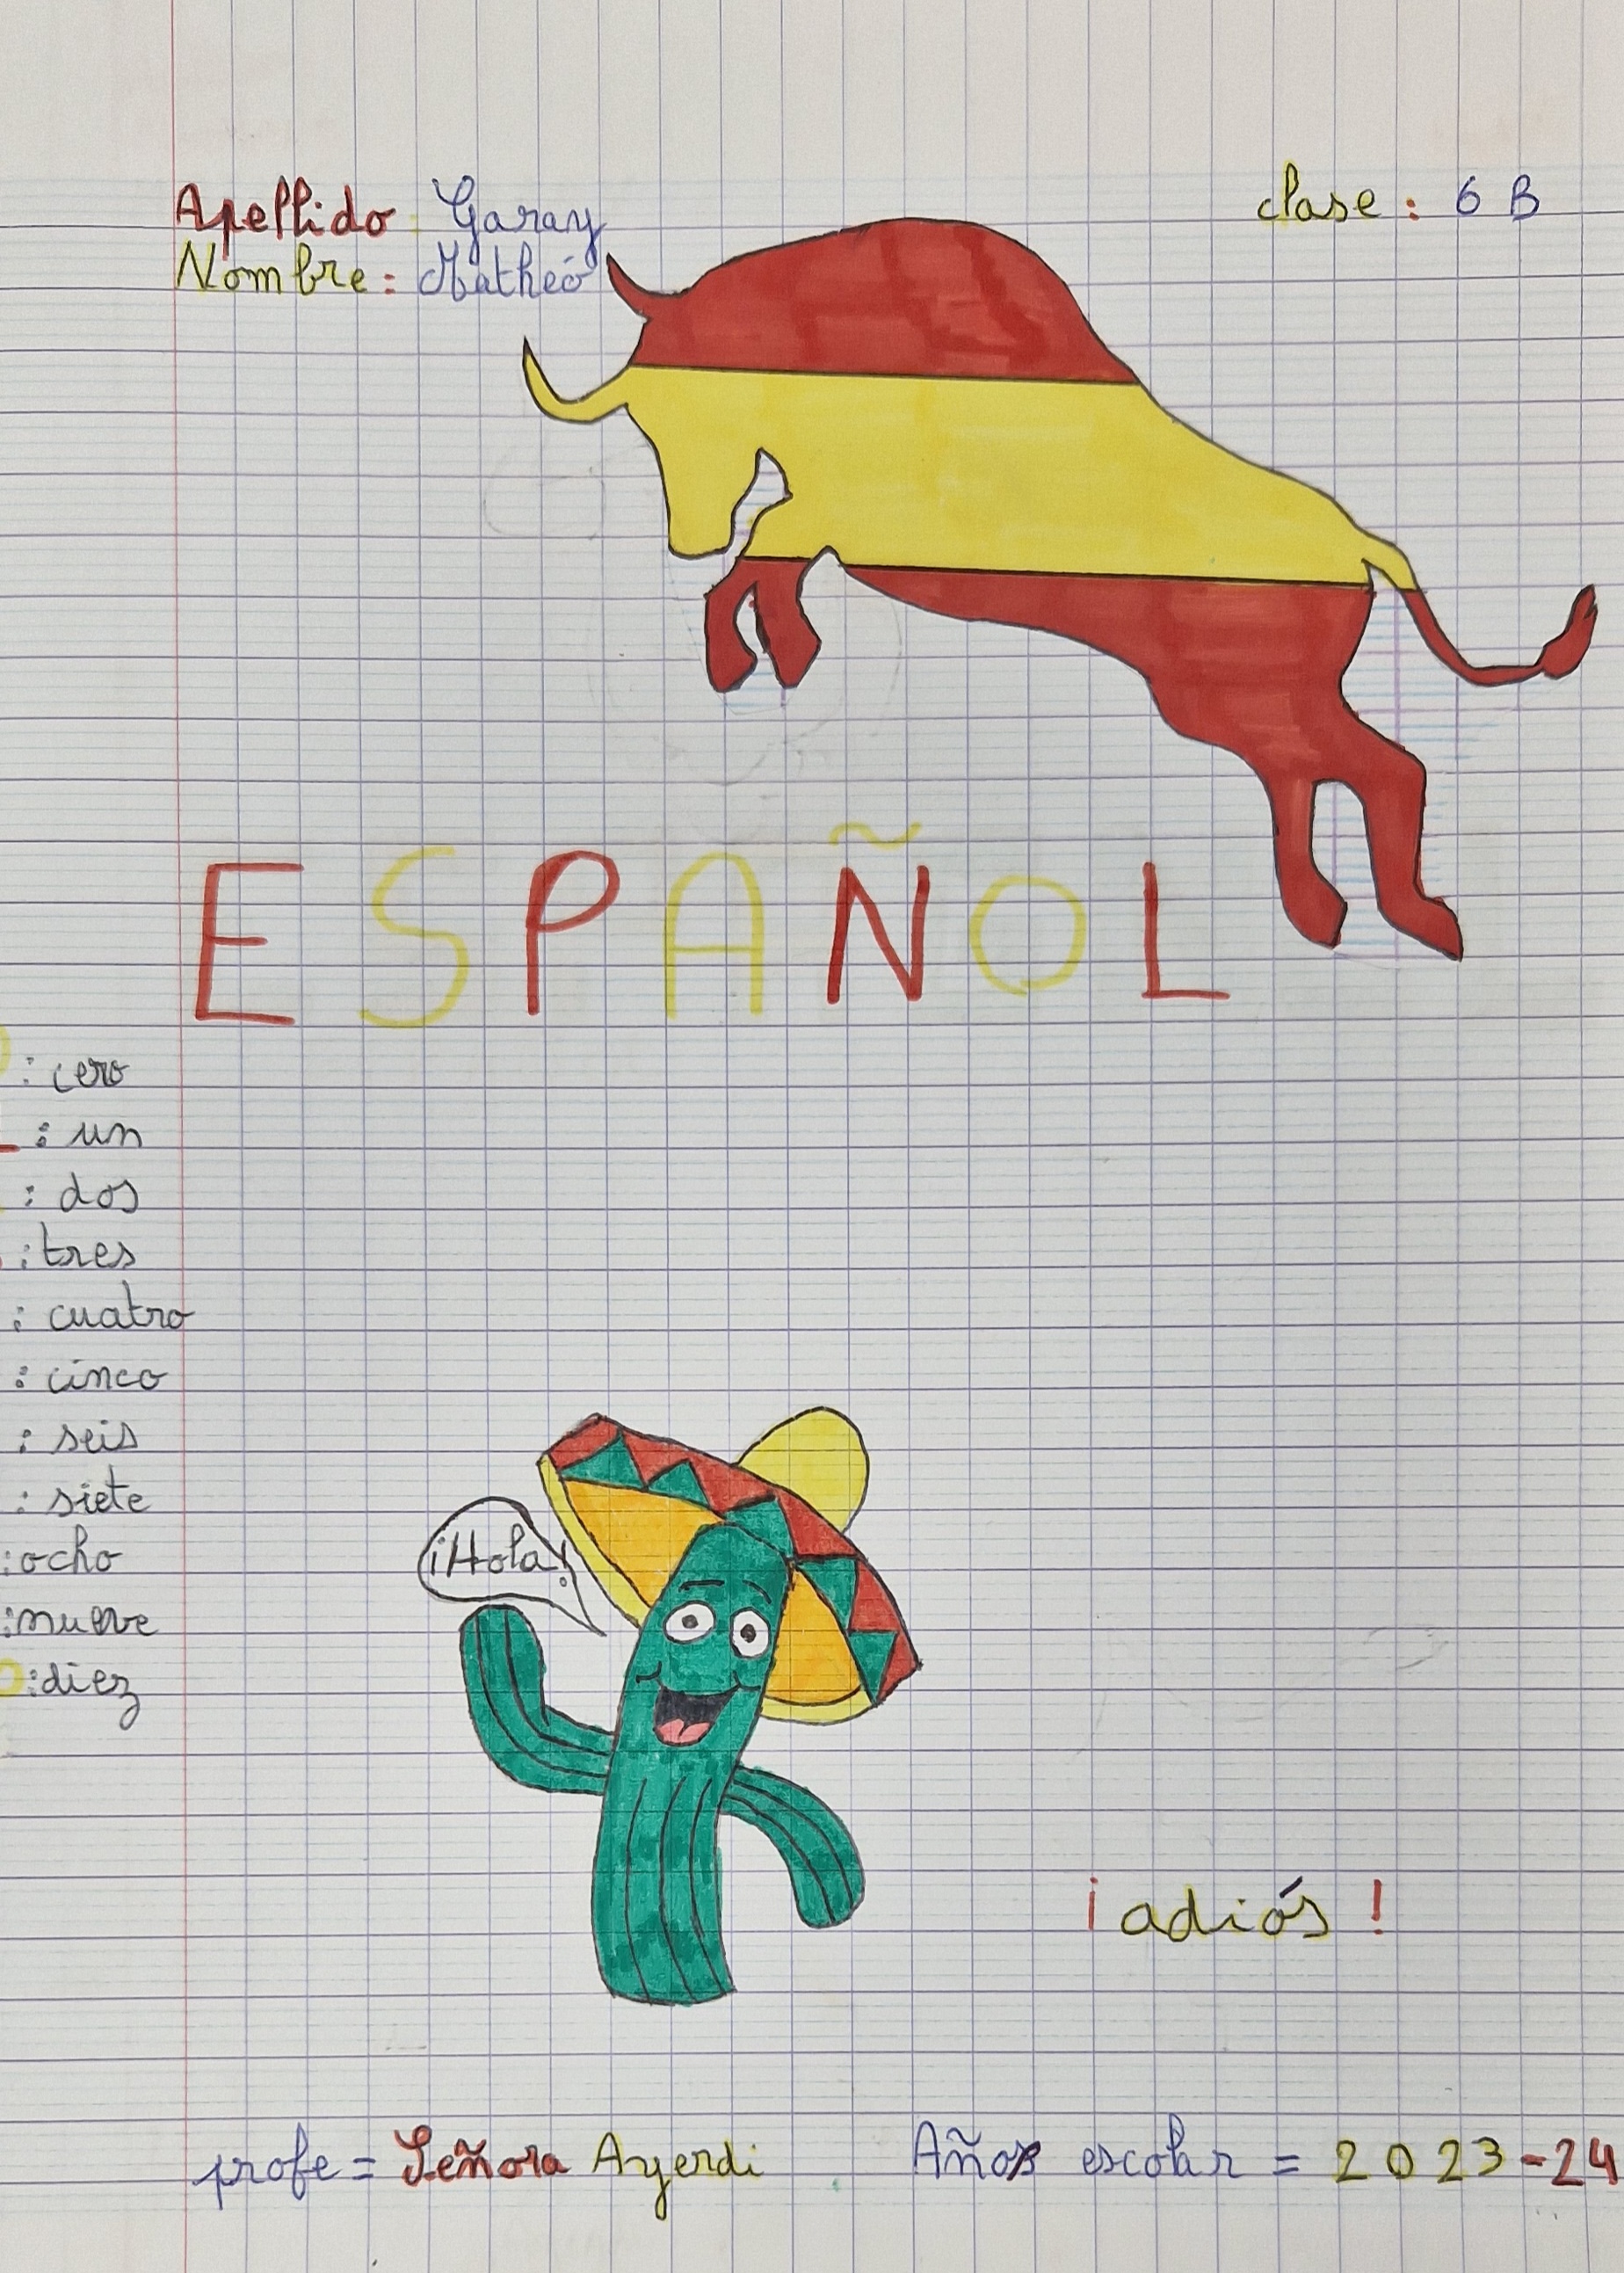 Apellido : Garay
clase : 6 B
Nombre : Matheó
ESPAÑOL
0 : cero
: un
: dos
: tres
: cuatro
: cinco
: seis
: siete
: ocho
: nueve
0 : diez
¡Hola!
¡ adiós !
profe = Señora Ayerdi
Año escolar = 2023-24